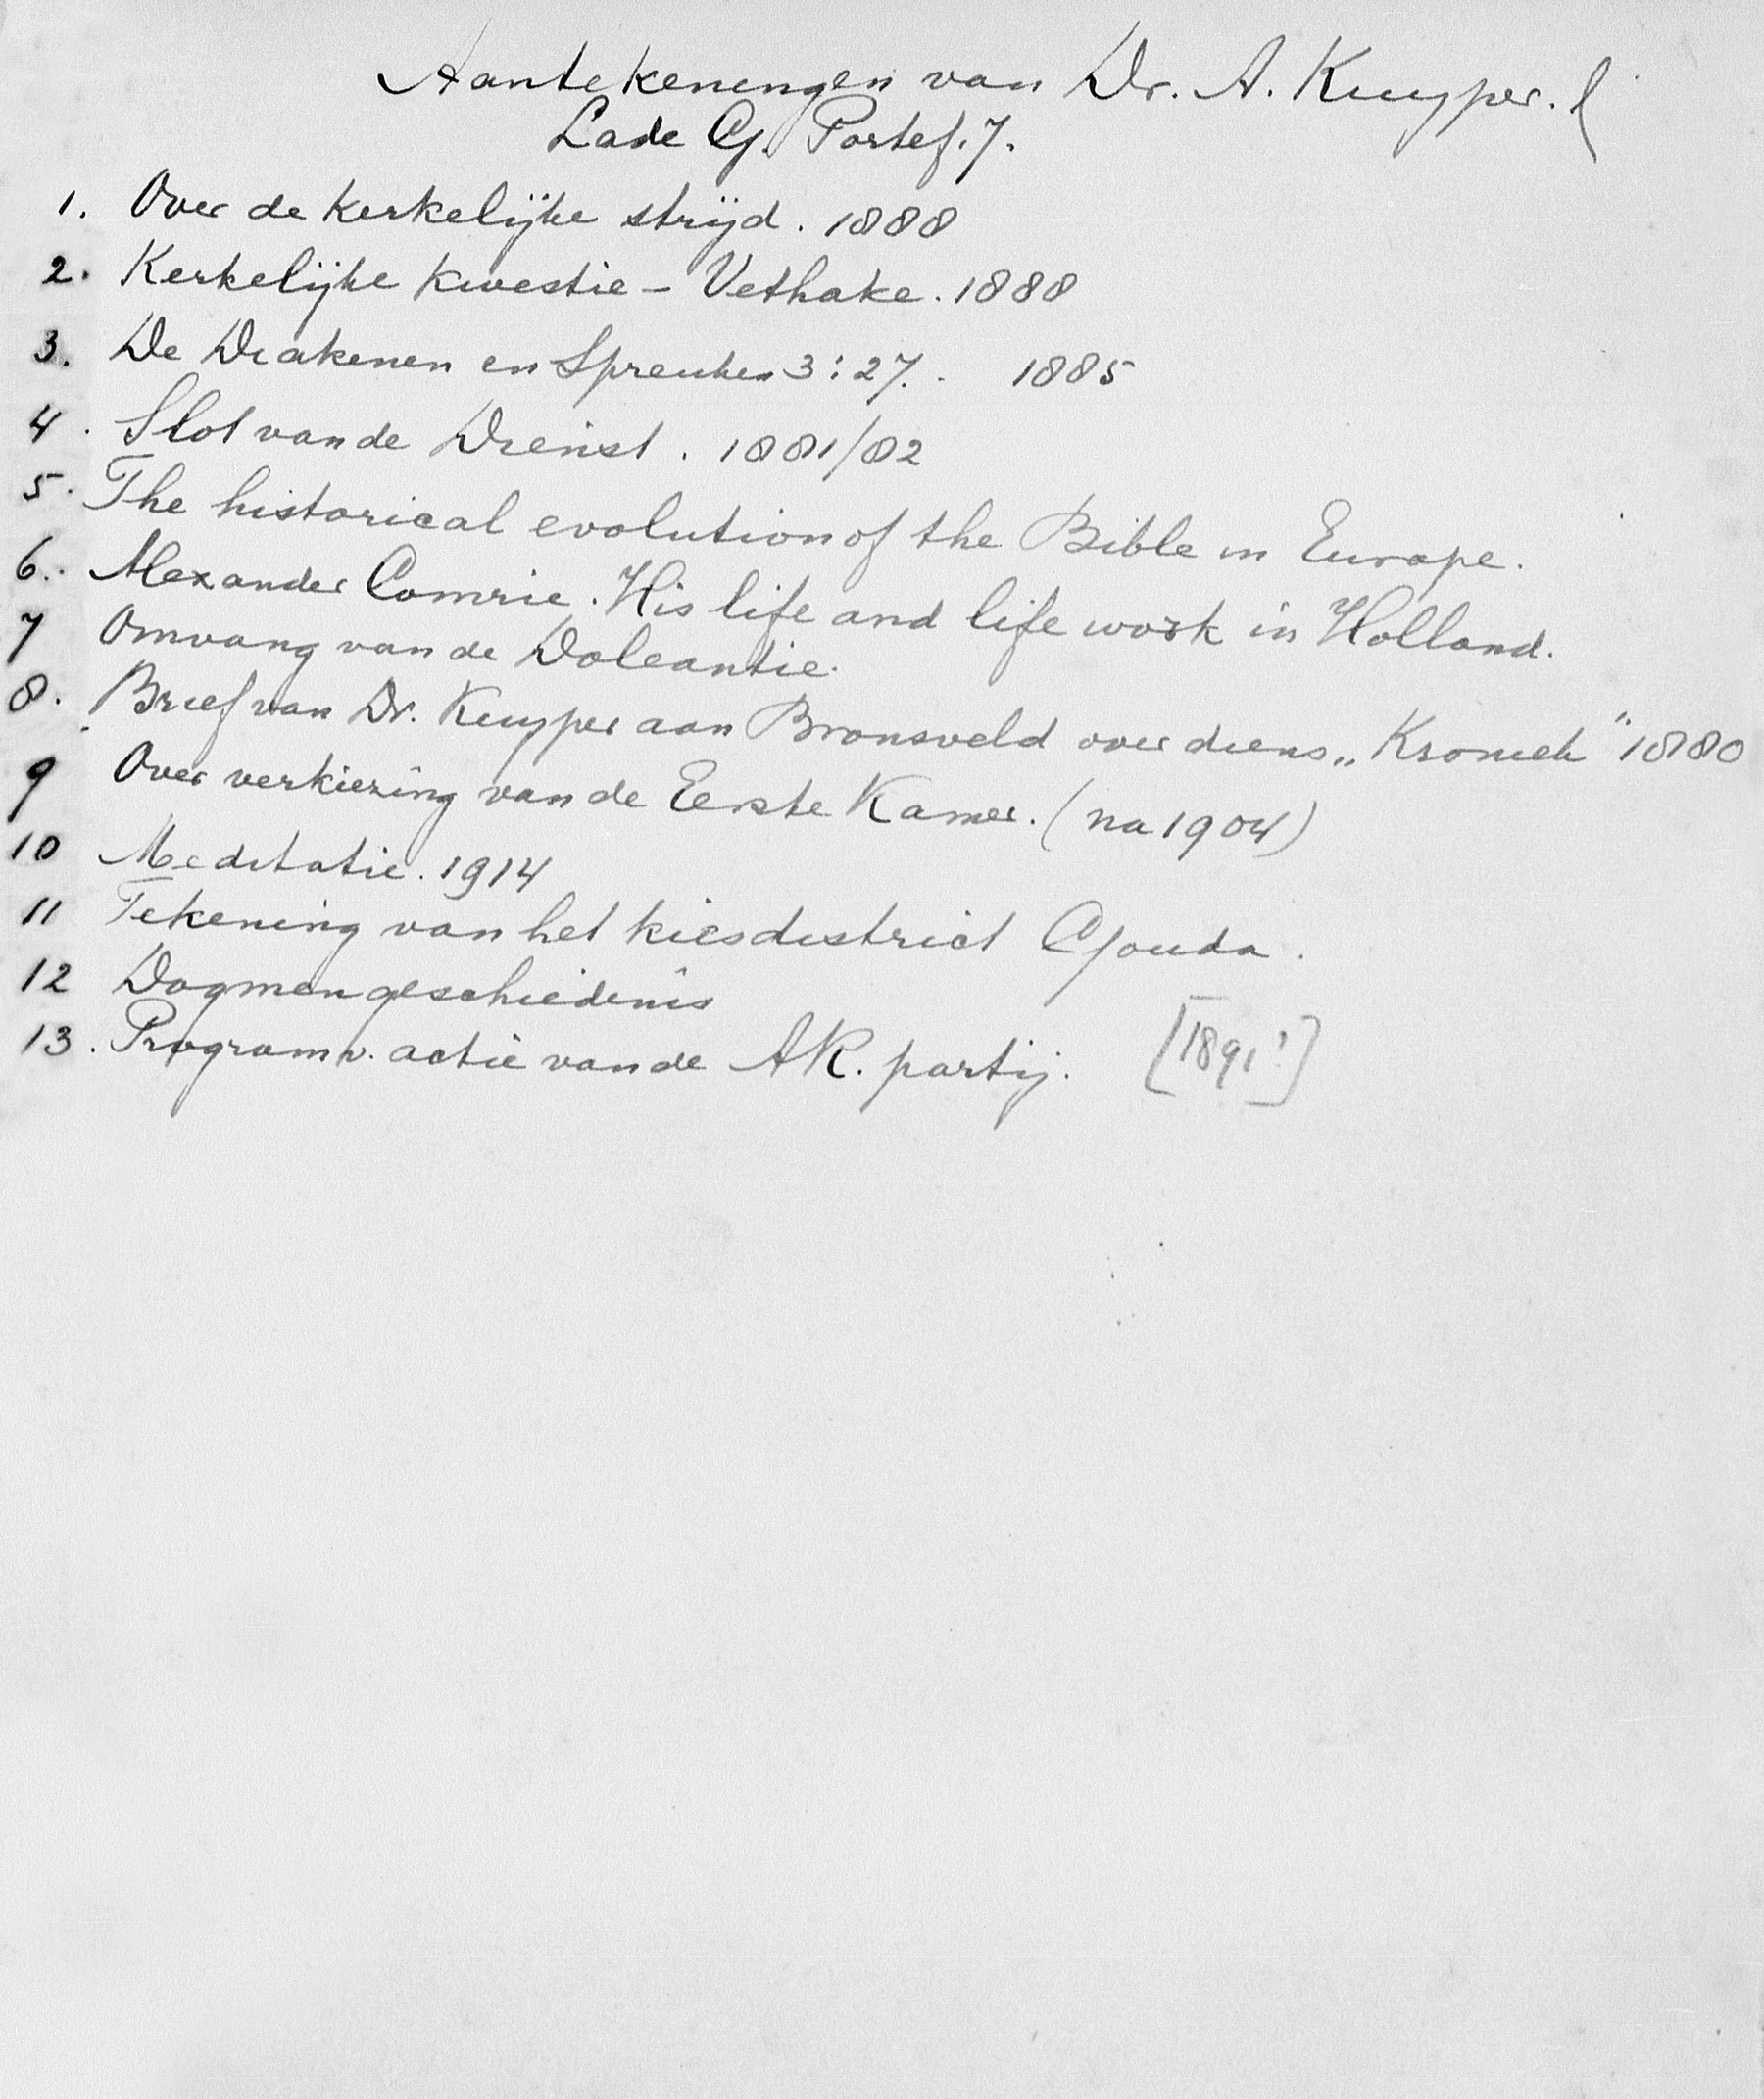 Aantekeningen van Dr. A. Kuyper.
Lade G. Portef. 7.
1. Over de kerkelijke strijd. 1888
2. Kerkelijke kwestie – Vethake. 1888
3. De Diakenen en Spreuken 3:27. 1885
4. Slot van de Dienst. 1881/82
5. The historical evolution of the Bible in Europe.
6. Alexander Comrie. His life and life work in Holland.
7 Omvang van de Doleantie.
8. Brief van Dr. Kuyper aan Bronsveld over diens „Kroniek" 1880
9 Over verkiezing van de Eerste Kamer. (na 1904)
10 Meditatie. 1914
11 Tekening van het kiesdistrict Gouda.
12 Dogmengeschiedenis
13. Program v. actie van de AR. partij. [1891?]